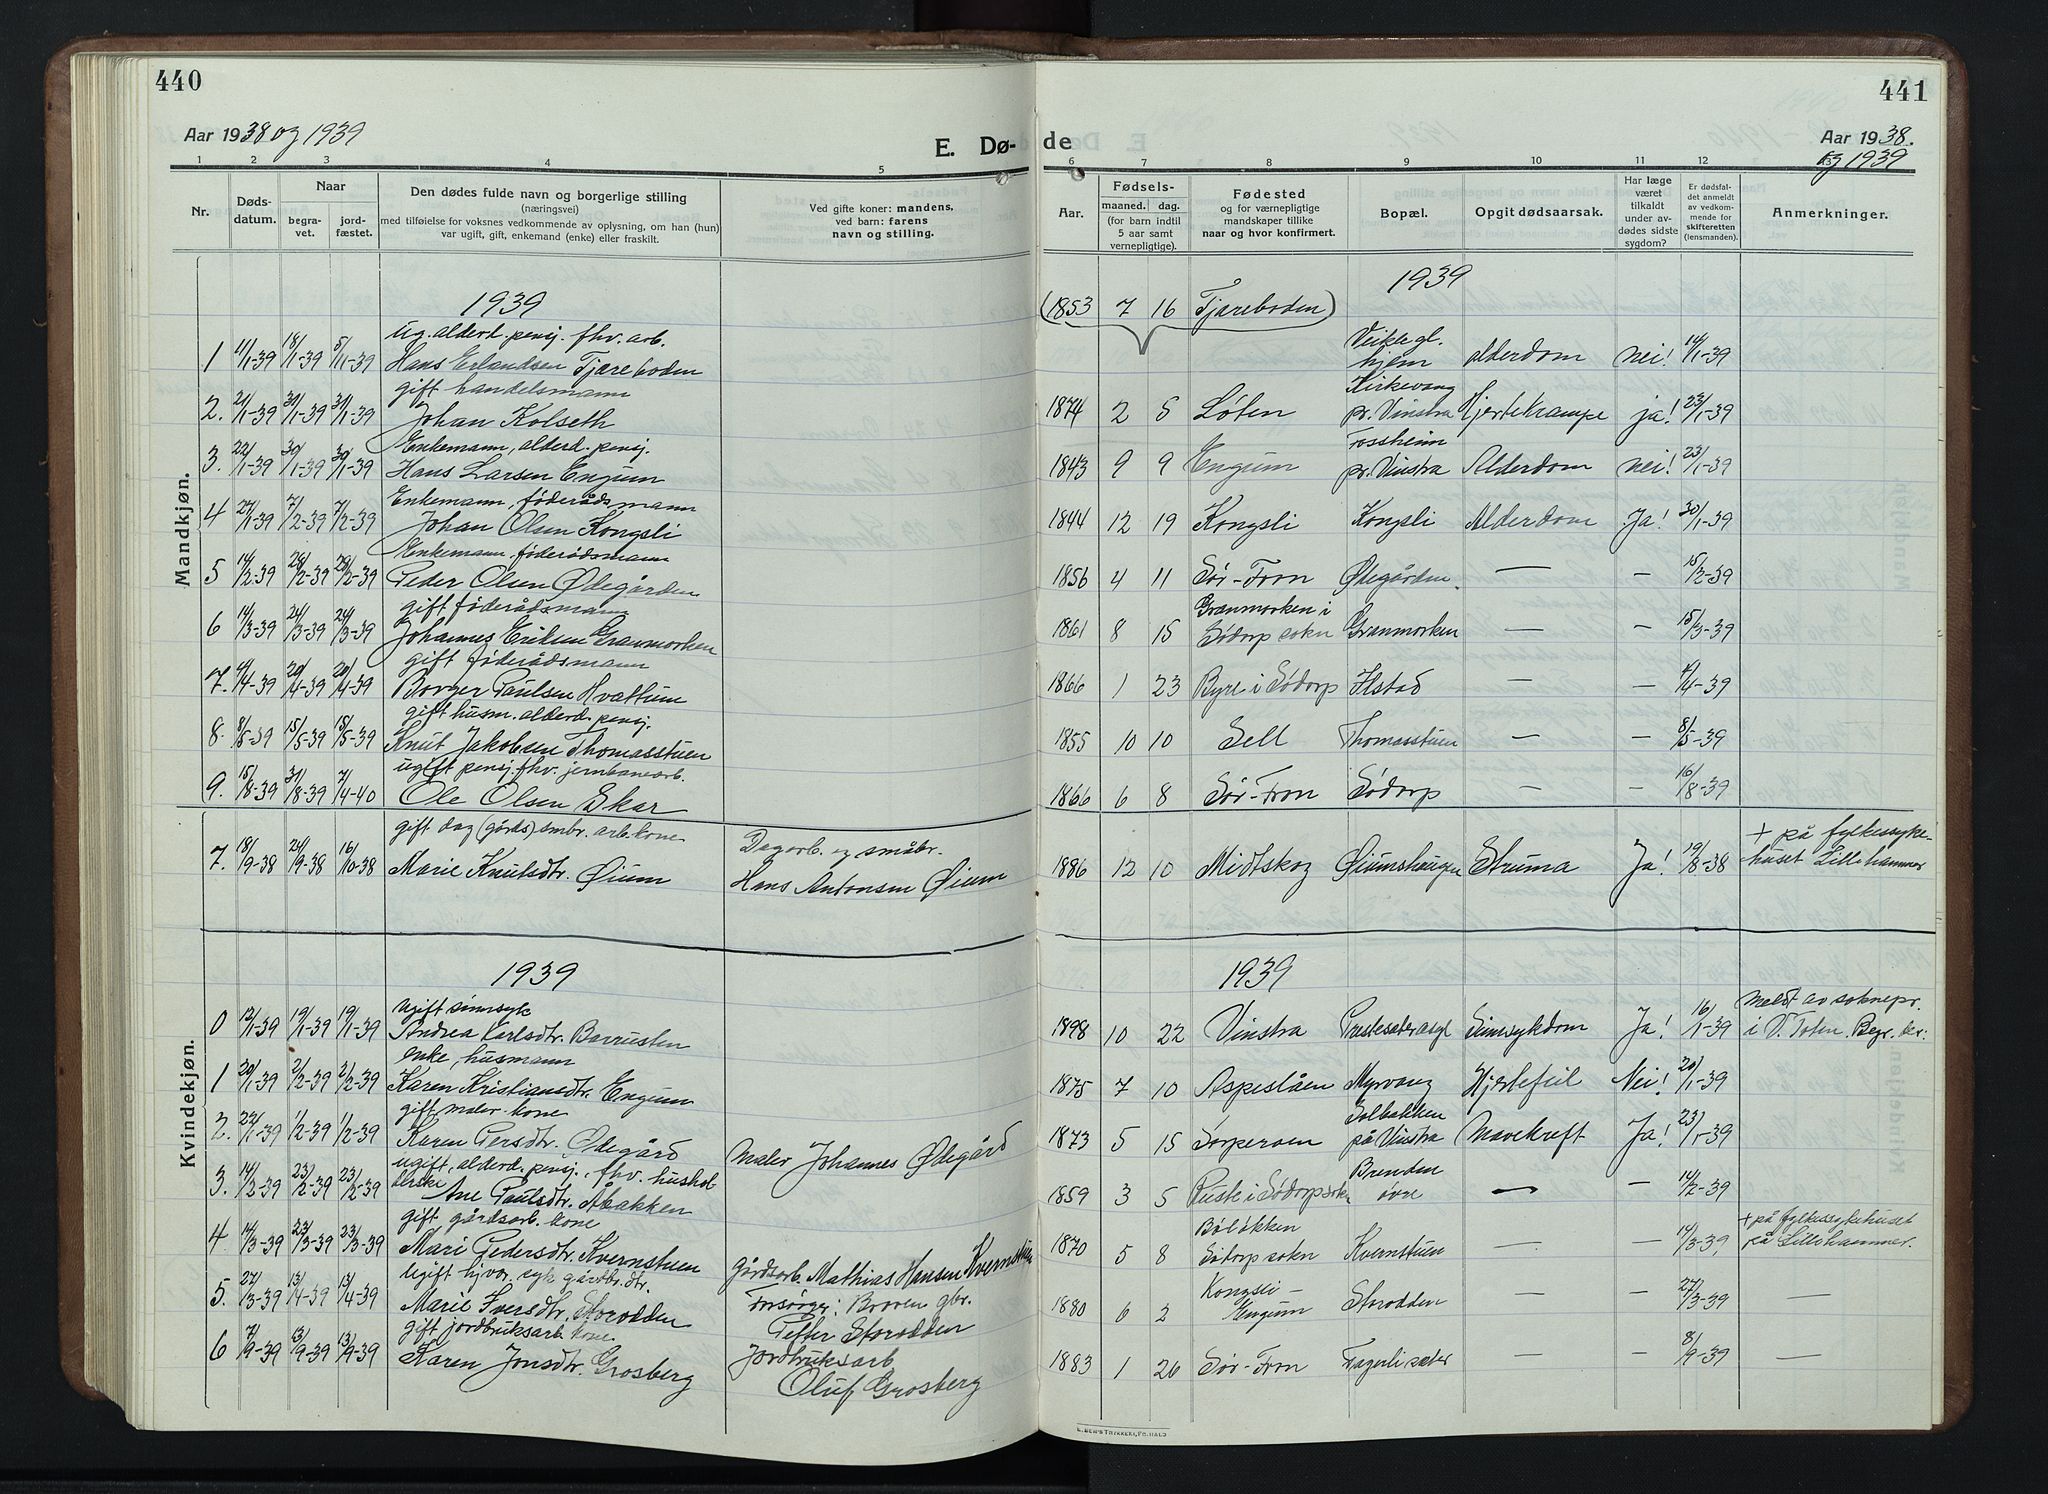 440
Aar 1938 og 1939
E. Dø-
1 2 3 4 5
Nr.
Døds-
datum.
Naar
begra-
vet.
jord-
fæstet.
Den dødes fulde navn og borgerlige stilling
(næringsvei)
med tilføielse for voksnes vedkommende av oplysning, om han (hun)
var ugift, gift, enkemand (enke) eller fraskilt.
Ved gifte koner: mandens,
ved barn: farens
navn og stilling.
Mandkjøn.
1939
ug. alderd. pensj. fhv. arb.
1 11/1-39 18/1-39 5/11-39 Hans Erlandsen Tjæreboden
gift handelsmann
2. 21/1-39 31/1-39 31/1-39 Johan Kolseth
Enkemann, alderd. pensj.
3. 22/1-39 30/1-39 30/1-39 Hans Larsen Engum
Enkemann, føderådsmann
4 27/1-39 7/2-39 7/2-39 Johan Olsen Kongsli
Enkemann, føderådsmann
5 14/2-39 28/2-39 28/2-39 Peder Olsen Ødegården
gift føderådsmann
6 14/3-39 24/3-39 24/3-39 Johannes Eriksen Granmorken
gift føderådsmann
7. 4-39 20/4-39 20/4-39 Borger Paulsen Hvattum
gift husm. alderd. pensj.
8. 8/5-39 15/5-39 15/5-39 Knut Jakobsen Thomasstuen
ugift pensj. fhv. jernbanearb.
9. 15/8-39 31/8-39 7/4-40 Ole Olsen Skar
gift dag (gårds) smbr. arb. kone Dagarb. og småbr.
7. 18/9-38 24/9-38 16/10-38 Marie Knutsdtr. Øium Hans Antonsen Øium
Kvindekjøn.
1939
ugift sinnsyk
0 12/1-39 19/1-39 19/1-39 Andrea Karlsdtr. Bovrusten
enke, husmann
1 20/1-39 2/2-39 2/2-39 Karen Kristiansdtr. Engum
gift maler kone
2. 22/1-39 1/2-39 1/2-39 Karen Persdtr. Ødegård Maler Johannes Ødegård
ugift, alderd. pensj. fhv. hushol-
3. 14/2-39 23/2-39 23/2-39 derske Ane Paulsdtr. Åbakken
gift gårdsarb. kone
4. 14/3-39 23/3-39 23/3-39 Mari Pedersdtr. Kvernstuen Gårdsarb. Mathias Hansen Kvernstuen
Ugift hjv. syk gårdbr. dtr. Forsørger: Broren gbr.
5. 27/3-39 13/4-39 13/4-39 Marie Iversdtr. Storodden Petter Storodden
gift jordbruksarb. kone Jordbruksarb
6 7/9-39 13/9-39 13/9-39 Karen Jonsdtr. Grosberg Oluf Grosberg
441
de
Aar 1938.
og 1939
6 7 8 9 10 11 12
Aar.
Fødsels-
maaned. dag.
(for barn indtil
5 aar samt
vernepligtige).
Fødested
og for værnepligtige
mandskaper tillike
naar og hvor konfirmert.
Bopæl.
Opgit dødsaarsak.
Har læge
været
tilkaldt
under av-
dødes sidste
sygdom?
Er dødsfal-
det anmeldt
av vedkom-
mende for
skifteretten
(lensmanden).
Anmerkninger.
1939
(1853 7 16 Tjæreboden)
Veikle gl. hjem Alderdom nei! 14/1-39
1874 2 5 Løten Kirkevang pr. Vinstra Hjertekrampe ja! 23/1-39
1843 9 9 Engum Fossheim pr. Vinstra Alderdom nei! 23/1-39
1844 12 19 Kongsli Kongsli Alderdom Ja! 30/1-39
1856 4 11 Sør-Fron Ødegården — — 15/2-39
1861 8 15 Granmorken i Sødorp sokn Granmorken — — 15/3-39
1866 1 23 Byre i Sødorp Ilstad — — 4-39
1855 10 10 Sell Thomasstuen — — 8/5-39
1866 6 8 Sør-Fron Sødorp — — 16/8-39
1886 12 10 Midtskog Øiumshaugen Struma Ja! 19/8-38 + på fylkessyke-
huset Lillehammer
1939
1898 10 22 Vinstra Prestesæter asyl Sinnsykdom Ja! 16/1-39 meldt av soknepr.
i V. Toten. Begr. her.
1875 7 10 Aspeslåen Myrvang Hjertefeil Nei! 20/1-39
1873 5 15 Sorperoen Solbakken på Vinstra Mavekreft Ja! 23/1-39
1859 3 5 Ruste i Sødorp sokn Brenden øvre — — 14/2-39
1870 5 8 Båløkken Sødorp sokn Kvernstuen — — 14/3-39 + på fylkessykehuset
på Lillehammer.
1880 6 2 Kongsli - Engum Storodden — — 27/3-39 —
1883 1 26 Sør-Fron Fagerli sæter — — 8/9-39 —